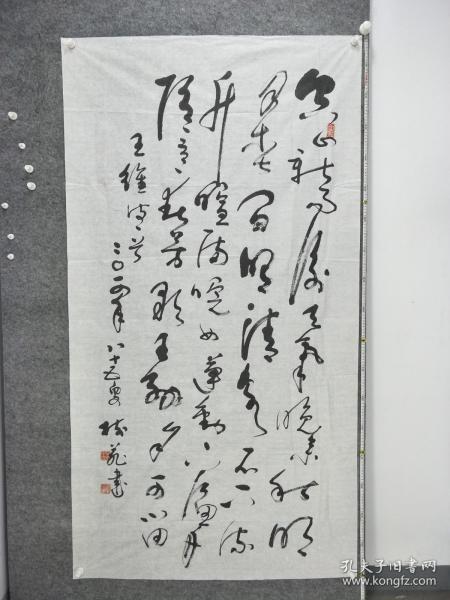 空山新雨後天氣晚来秋明
月松间照清泉石上流
竹喧歸浣女蓮動下渔舟
随意春芳歇王孫自可留
王維诗一首
二〇一四年八十五叟書
孔夫子旧书网
www.kongfz.com